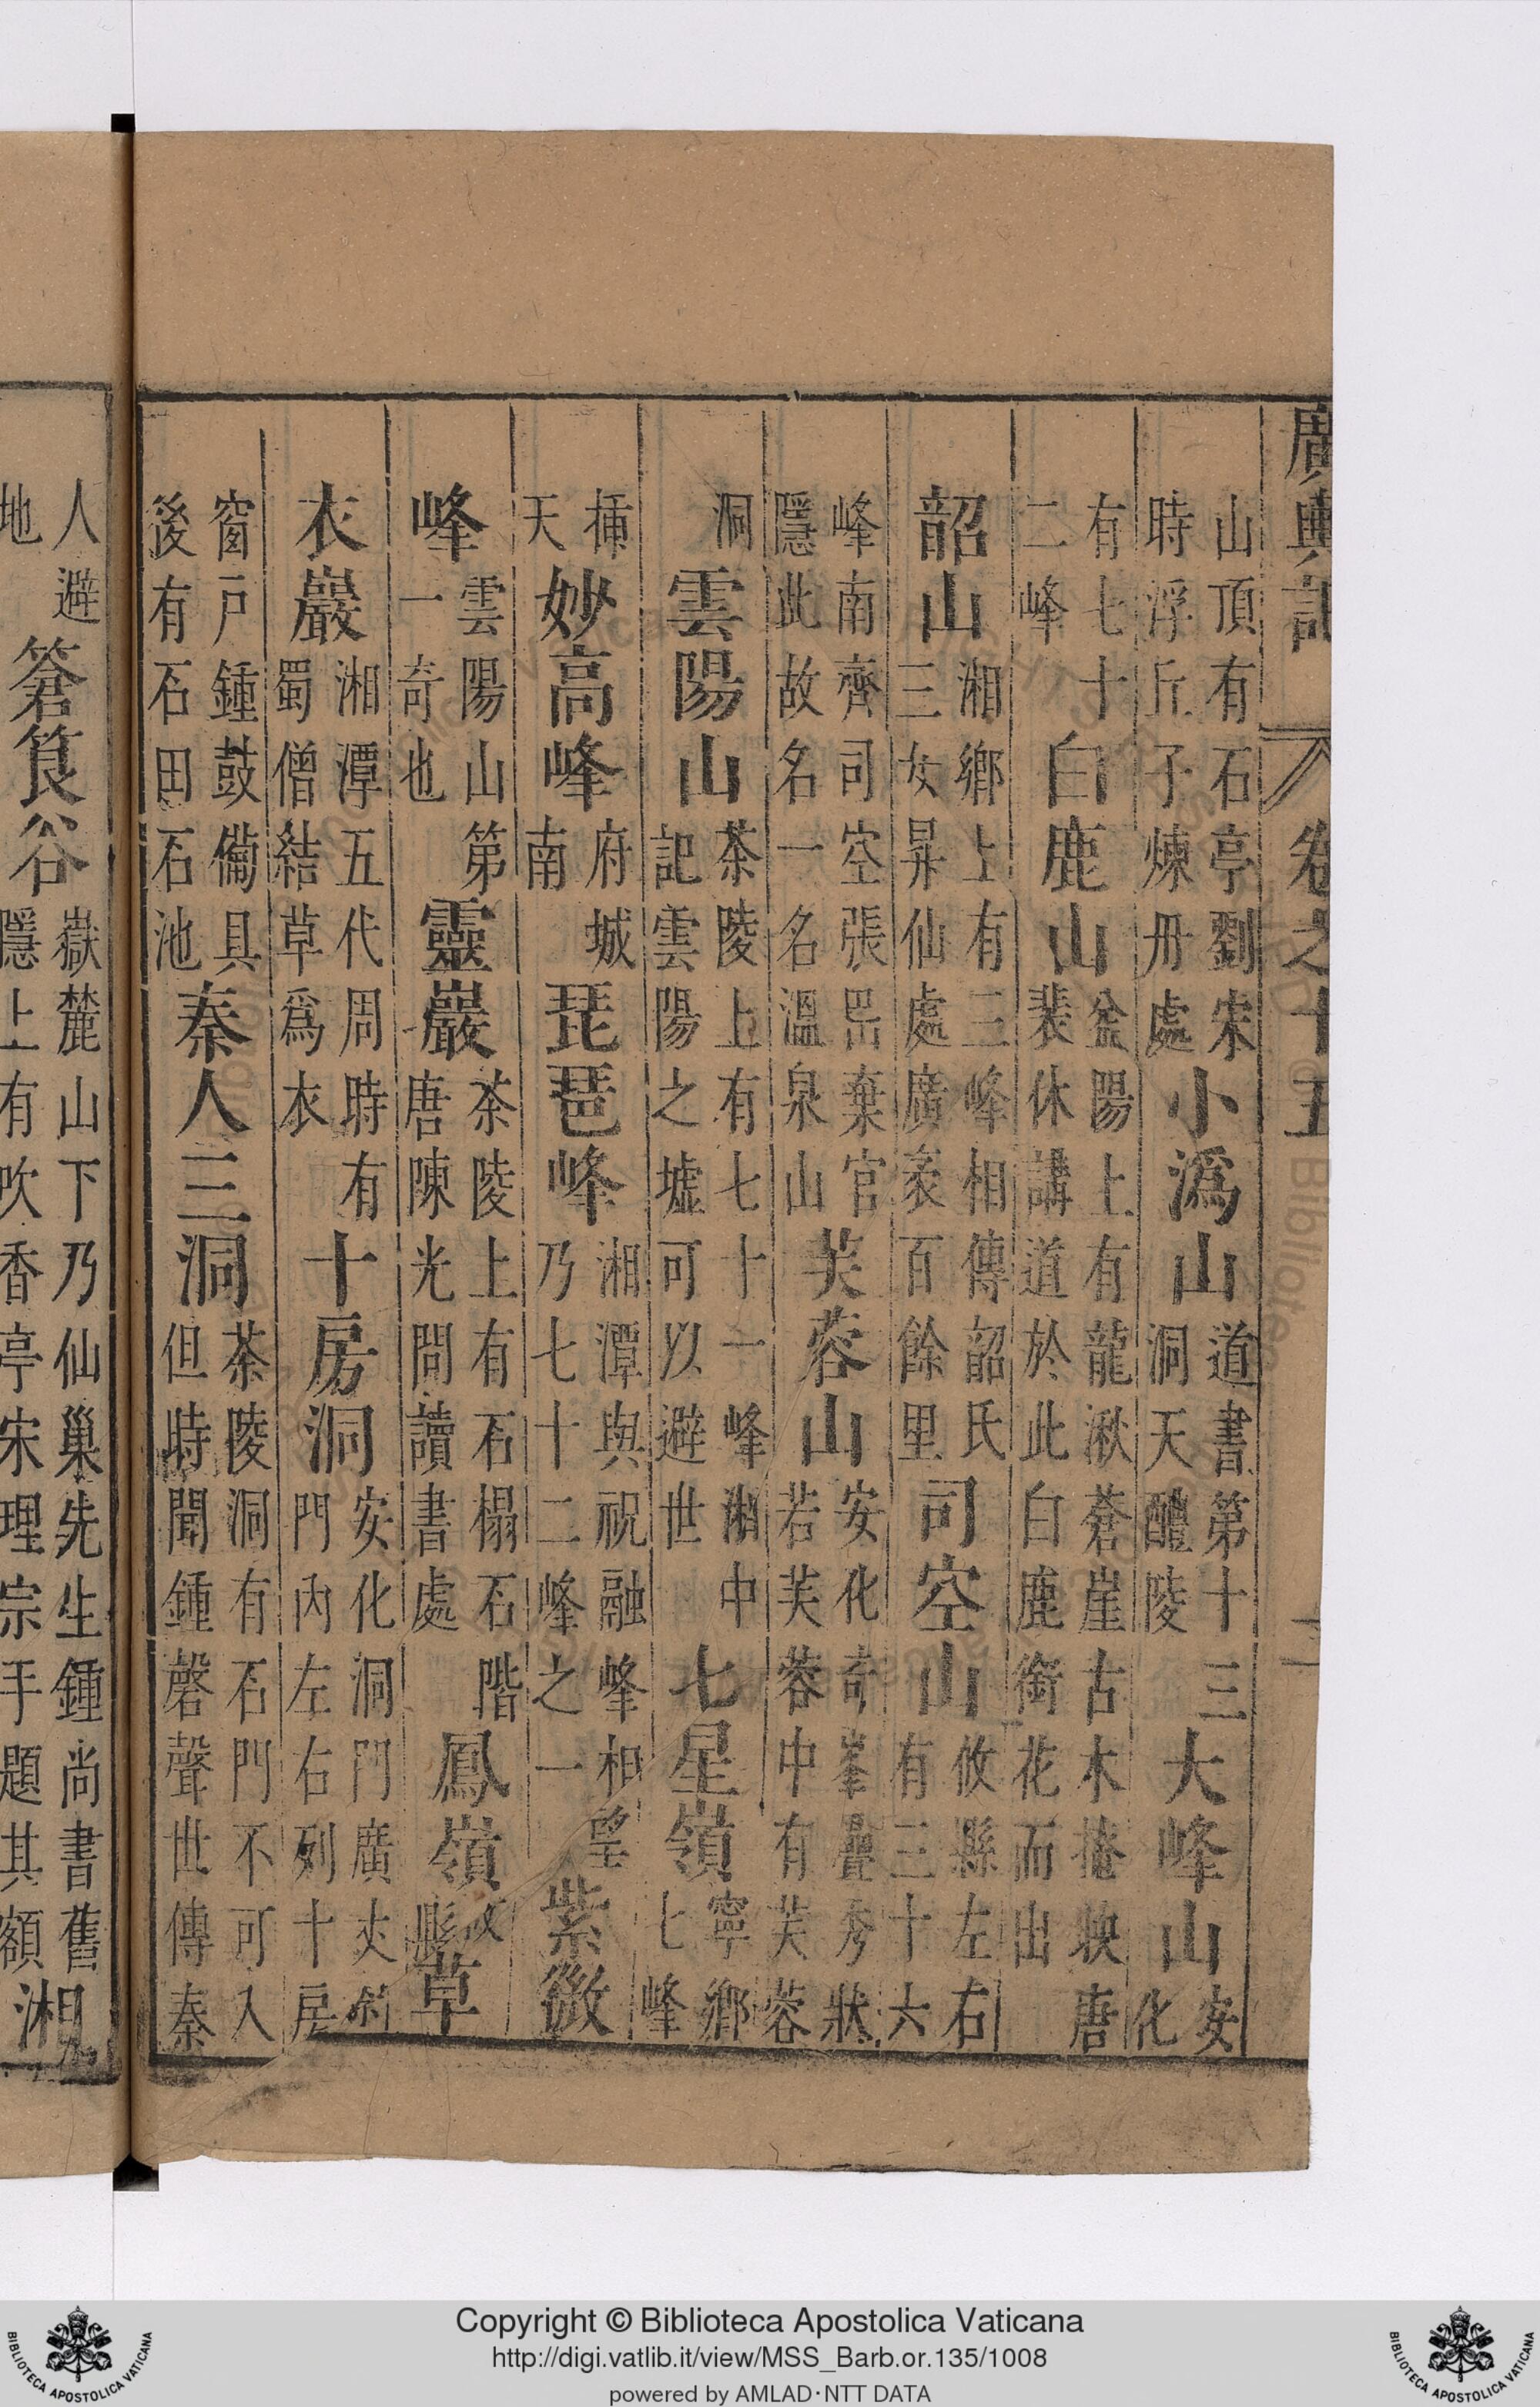 廣輿記 卷之十五 二
山頂有石亭劉宋時浮丘子煉丹處小潙山道書第十三洞天醴陵大峰山安化
有七十二峰白鹿山益陽上有龍湫蒼崖古木掩映唐裴休講道於此白鹿銜花而出
韶山湘鄉上有三峰相傳韶氏三女昇仙處廣袤百餘里司空山攸縣左右有三十六
峰南齊司空張岊棄官隱此故名一名溫泉山芙蓉山安化奇峯疊秀狀若芙蓉中有芙蓉
洞雲陽山茶陵上有七十一峰湘中記雲陽之墟可以避世七星嶺寧鄉七峰
揷天妙高峰府城南琵琶峰湘潭與祝融峰相望乃七十二峰之一紫微
峰雲陽山第一奇也靈巖茶陵上有石榻石階唐陳光問讀書處鳳嶺攸縣草
衣巖湘潭五代周時有蜀僧結草爲衣十房洞安化洞門廣丈餘門內左右列十房
窗戶鍾鼓備具後有石田石池秦人三洞茶陵洞有石門不可入但時聞鍾磬聲世傳秦
人避地篬筤谷嶽麓山下乃仙巢先生鍾尚書舊隱上有吹香亭宋理宗手題其額湘
Copyright © Biblioteca Apostolica Vaticana
http://digi.vatlib.it/view/MSS_Barb.or.135/1008
powered by AMLAD·NTT DATA
BIBLIOTECA APOSTOLICA VATICANA
BIBLIOTECA APOSTOLICA VATICANA